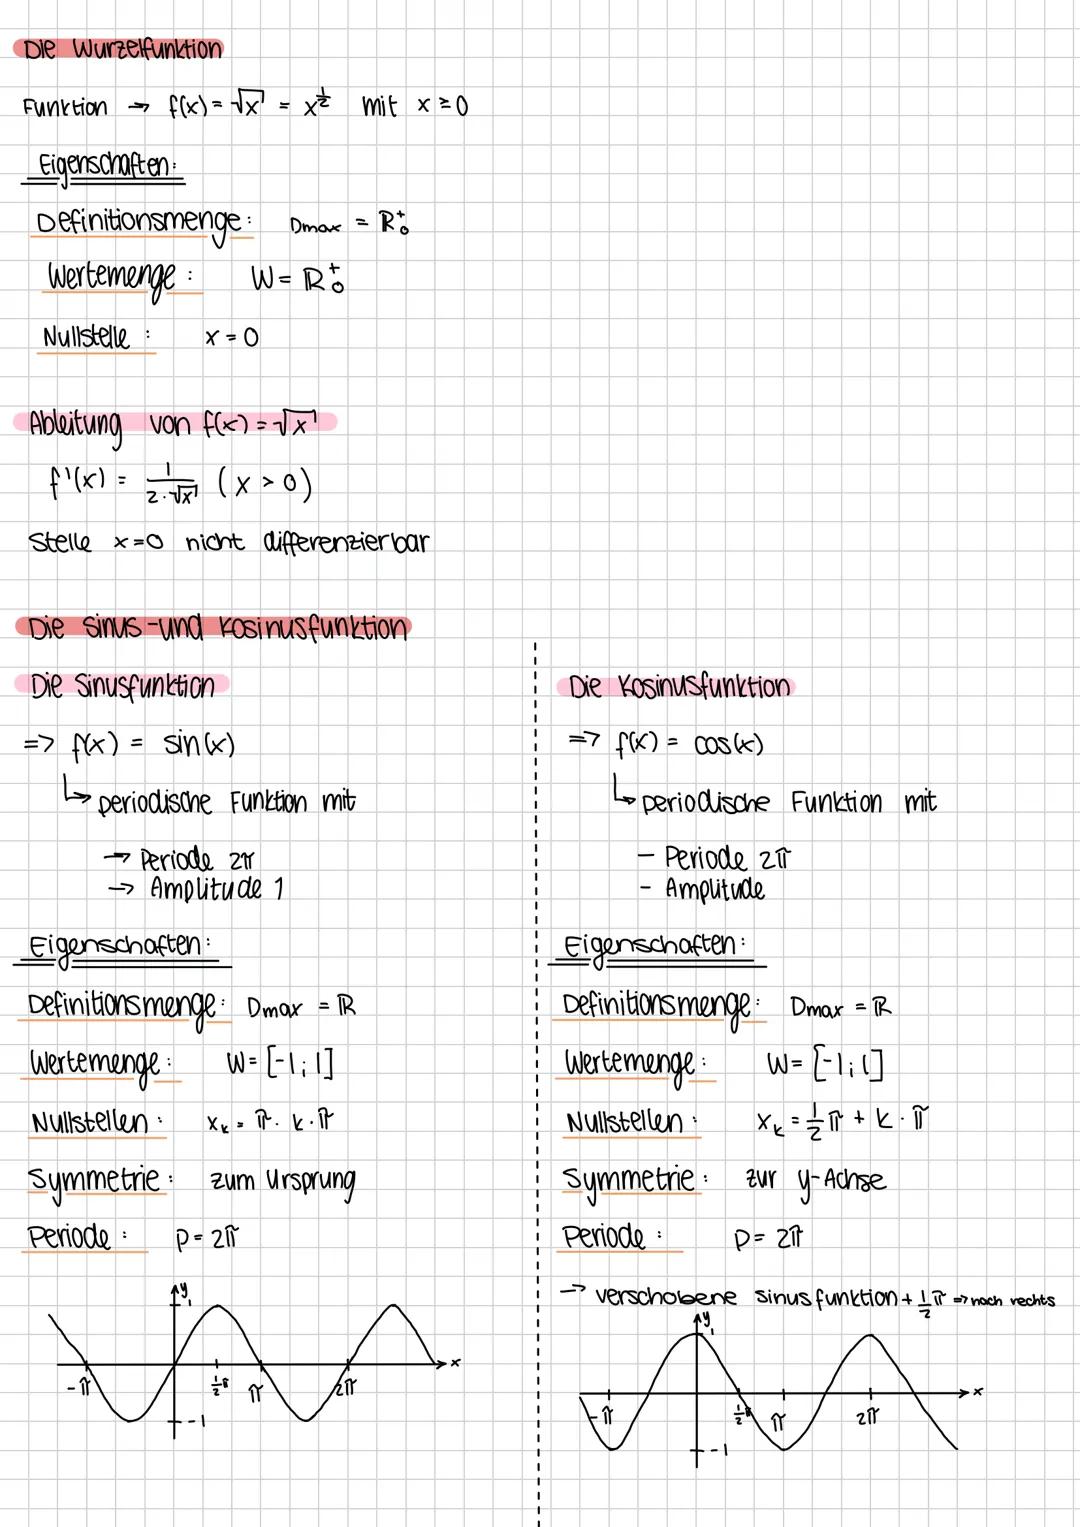 Die Wurzelfunktion
Funktion → f(x) = √x = x^½ mit x ≥ 0
Eigenschaften:
Definitionsmenge: Dmax = ℝ₀⁺
Wertemenge: W = ℝ₀⁺
Nullstelle: x = 0
Ableitung von f(x) = √x
f'(x) = 1/(2·√x) (x > 0)
Stelle x=0 nicht differenzierbar
Die Sinus-und Kosinusfunktion
Die Sinusfunktion
=> f(x) = sin(x)
↳ periodische Funktion mit
→ Periode 2π
→ Amplitude 1
Eigenschaften:
Definitionsmenge: Dmax = ℝ
Wertemenge: W = [-1; 1]
Nullstellen: x_k = π · k · π
Symmetrie: zum Ursprung
Periode: p = 2π
y
1
-π ½π π 2π x
-1
Die Kosinusfunktion
=> f(x) = cos(x)
↳ periodische Funktion mit
- Periode 2π
- Amplitude
Eigenschaften:
Definitionsmenge: Dmax = ℝ
Wertemenge: W = [-1; 1]
Nullstellen: x_k = ½π + k · π
Symmetrie: zur y-Achse
Periode: p = 2π
→ verschobene Sinusfunktion + ½π => nach rechts
y
1
-π ½π π 2π x
-1